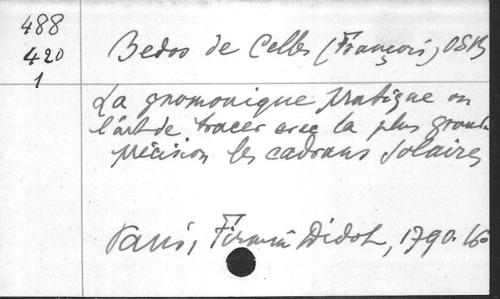 488
420
1
Bedos de Celles (François) OSB
La gnomonique pratique ou
l'art de tracer avec la plus grande
précision les cadrans solaires
Paris, Firmin Didot, 1790.